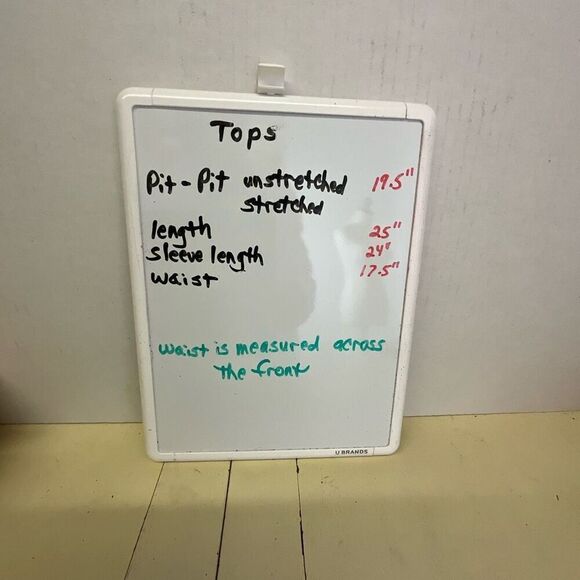 Tops
Pit-Pit unstretched 19.5"
stretched
length 25"
sleeve length 24"
waist 17.5"
waist is measured across
the front
U BRANDS